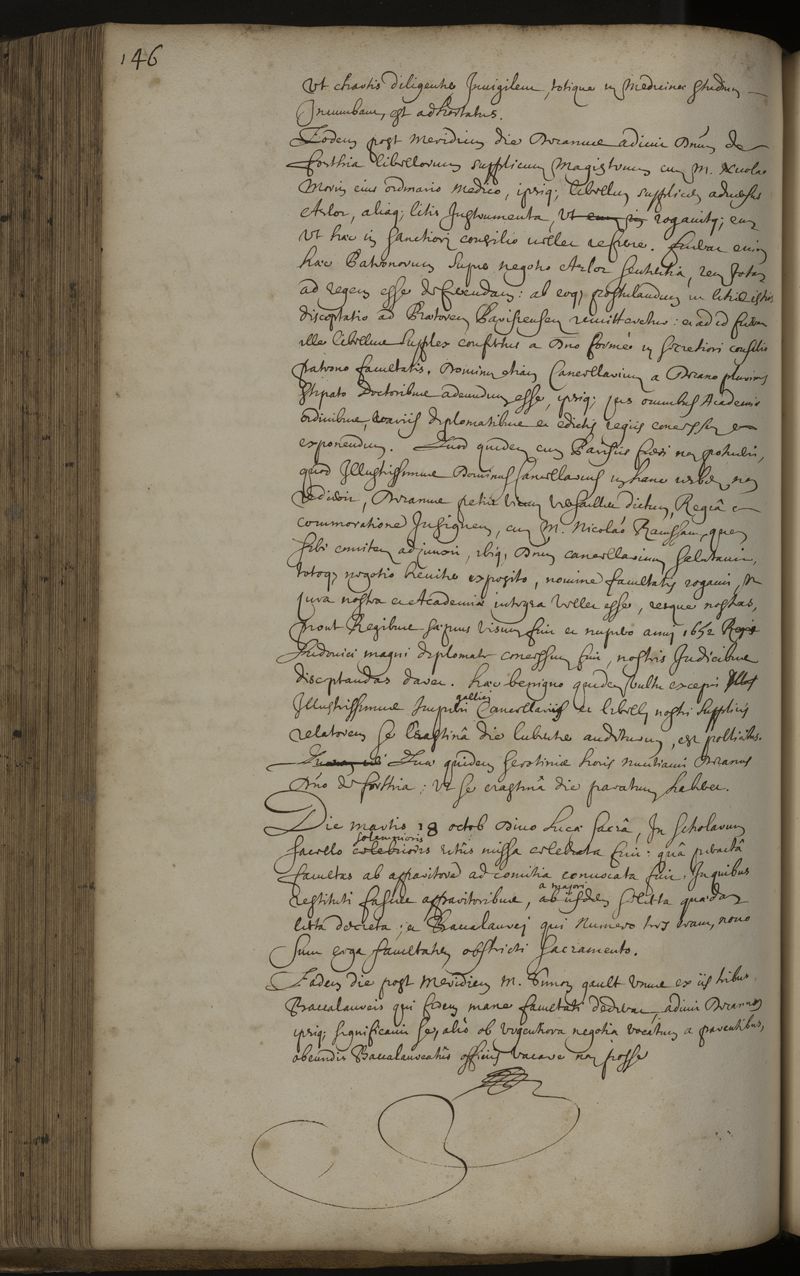 146
Ut chartis diligenter Invigilem, totique in Medicinæ studium
Incumbam, est adhortatus.
Eodem post meridiem die Decanus adivit Dnum de
forthia libellorum supplicum Magistrum cum M. Nicolao
Morin eius ordinario Medico, ipsiq; libellum supplicem adversus
Arlor, aliaq; litis Instrumenta, Ut rogavitq; eum
Ut hæc in sanctiori consilio vellet referre. ferebat enim
hæc Patronorum super negotio Arlor sententia, rem totam
ad regem esse deferendam: ab eoq; postulandum ut litis istius
disceptatio ad Prætorem Parisiensem remitteretur: et ad id
ille libellus supplex confectus a Dno formé in secretiori consilio
patrono facultatis. Dominum etiam Cancellarium a Decano pluribus
stipato Doctoribus adeundum esse, ipsiq; jus omnibus Academiæ
ordinibus, variis diplomatibus et edictis regiis concessum
exponendum. Quod quidem cum Parisiis fieri non potuerit,
quod Illustrissimus Dominus Cancellarius in hanc urbem non
rediverit, Decanus petiit vicum Versailles dictum, Regiâ
commoratione Insignem, cum M. Nicolao Rainssant, quem
sibi comitem adjunxit, ibiq; Dnum cancellarium salutavit,
totoq; negotio breviter exposito, nomine facultatis rogavit, ut
jura nostra et Academiæ integra vellet esse, resque nostras,
prout Regibus sæpius visum fuit et nupero anni 1652 Regis
Ludovici magni diplomate concessum fuit, nostris Judicibus
disceptandas daret. hæc benigno quidem vultu excepit
Illustrissimus Imperii gallici Cancellarius et libelli nostri supplicis
relatorem se crastinâ die lubenter auditurum, est pollicitus.
Quæ quidem serotinis horis nuntiavit Decanus
Dno de forthia; Ut se crastinâ die paratum haberet.
Die martis 18 octob Divo Lucæ sacrâ, In scholarum
sacello solemnioris ritûs missa celebrata fuit: quâ peractâ
facultas ab apparitore ad comitia convocata fuit. In quibus
restituti fasces apparitoribus, a majori ab iisdem
lecta decreta; et Baccalaurei qui numero tres erant, novo
sunt erga facultatem obstricti sacramento.
Eadem die post meridiem M. Simon gault unus ex iis tribus
Baccalaureis qui fidem mane facultati dederant, adivit Decanum
ipsiq; significavit se, aliò ob urgentiora negotia vocatum a parentibus,
obeundis Baccalaureatûs officiis vacare non posse